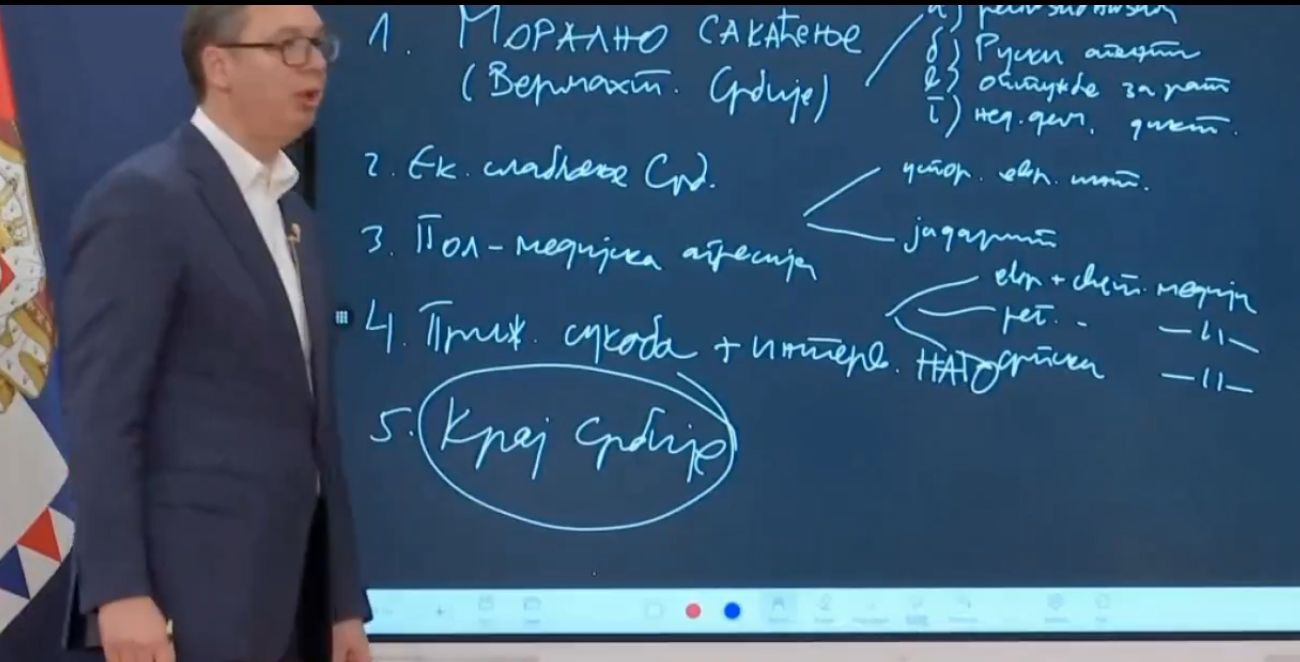 1. Морално сакаћење
(Вермахт. Србије)
а)
б) Руски агенти
в) оптужбе за рат
г) нед. дикт.
2. Ек. слабљење Срб.
успор. евр. инт.
јадарит
3. Пол-медијска агресија
евр + свет. медији
рег. . -//-
српски -//-
4. Приж. сукоба + интерв. НАТО
5. Крај Србије